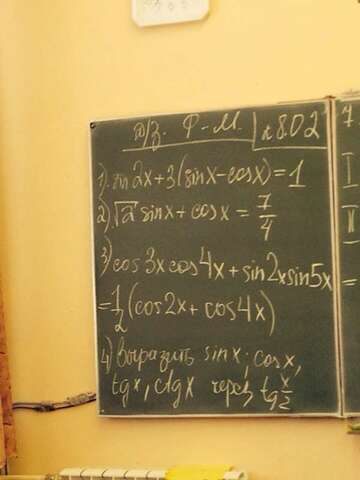 Д/З. Ф-М. к 8.02
1) sin 2x + 3(sinx - cosx) = 1
2) √2 sinx + cosx = 7/4
3) cos 3x cos 4x + sin 2x sin 5x =
= 1/2 (cos 2x + cos 4x)
4) выразить sin x; cos x,
tg x, ctg x через tg x/2
7.
I
II